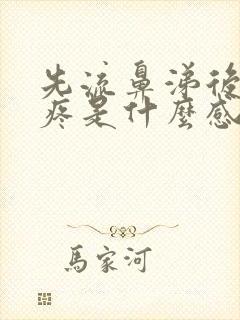 先流鼻涕後
疼是什麼感
馬家河